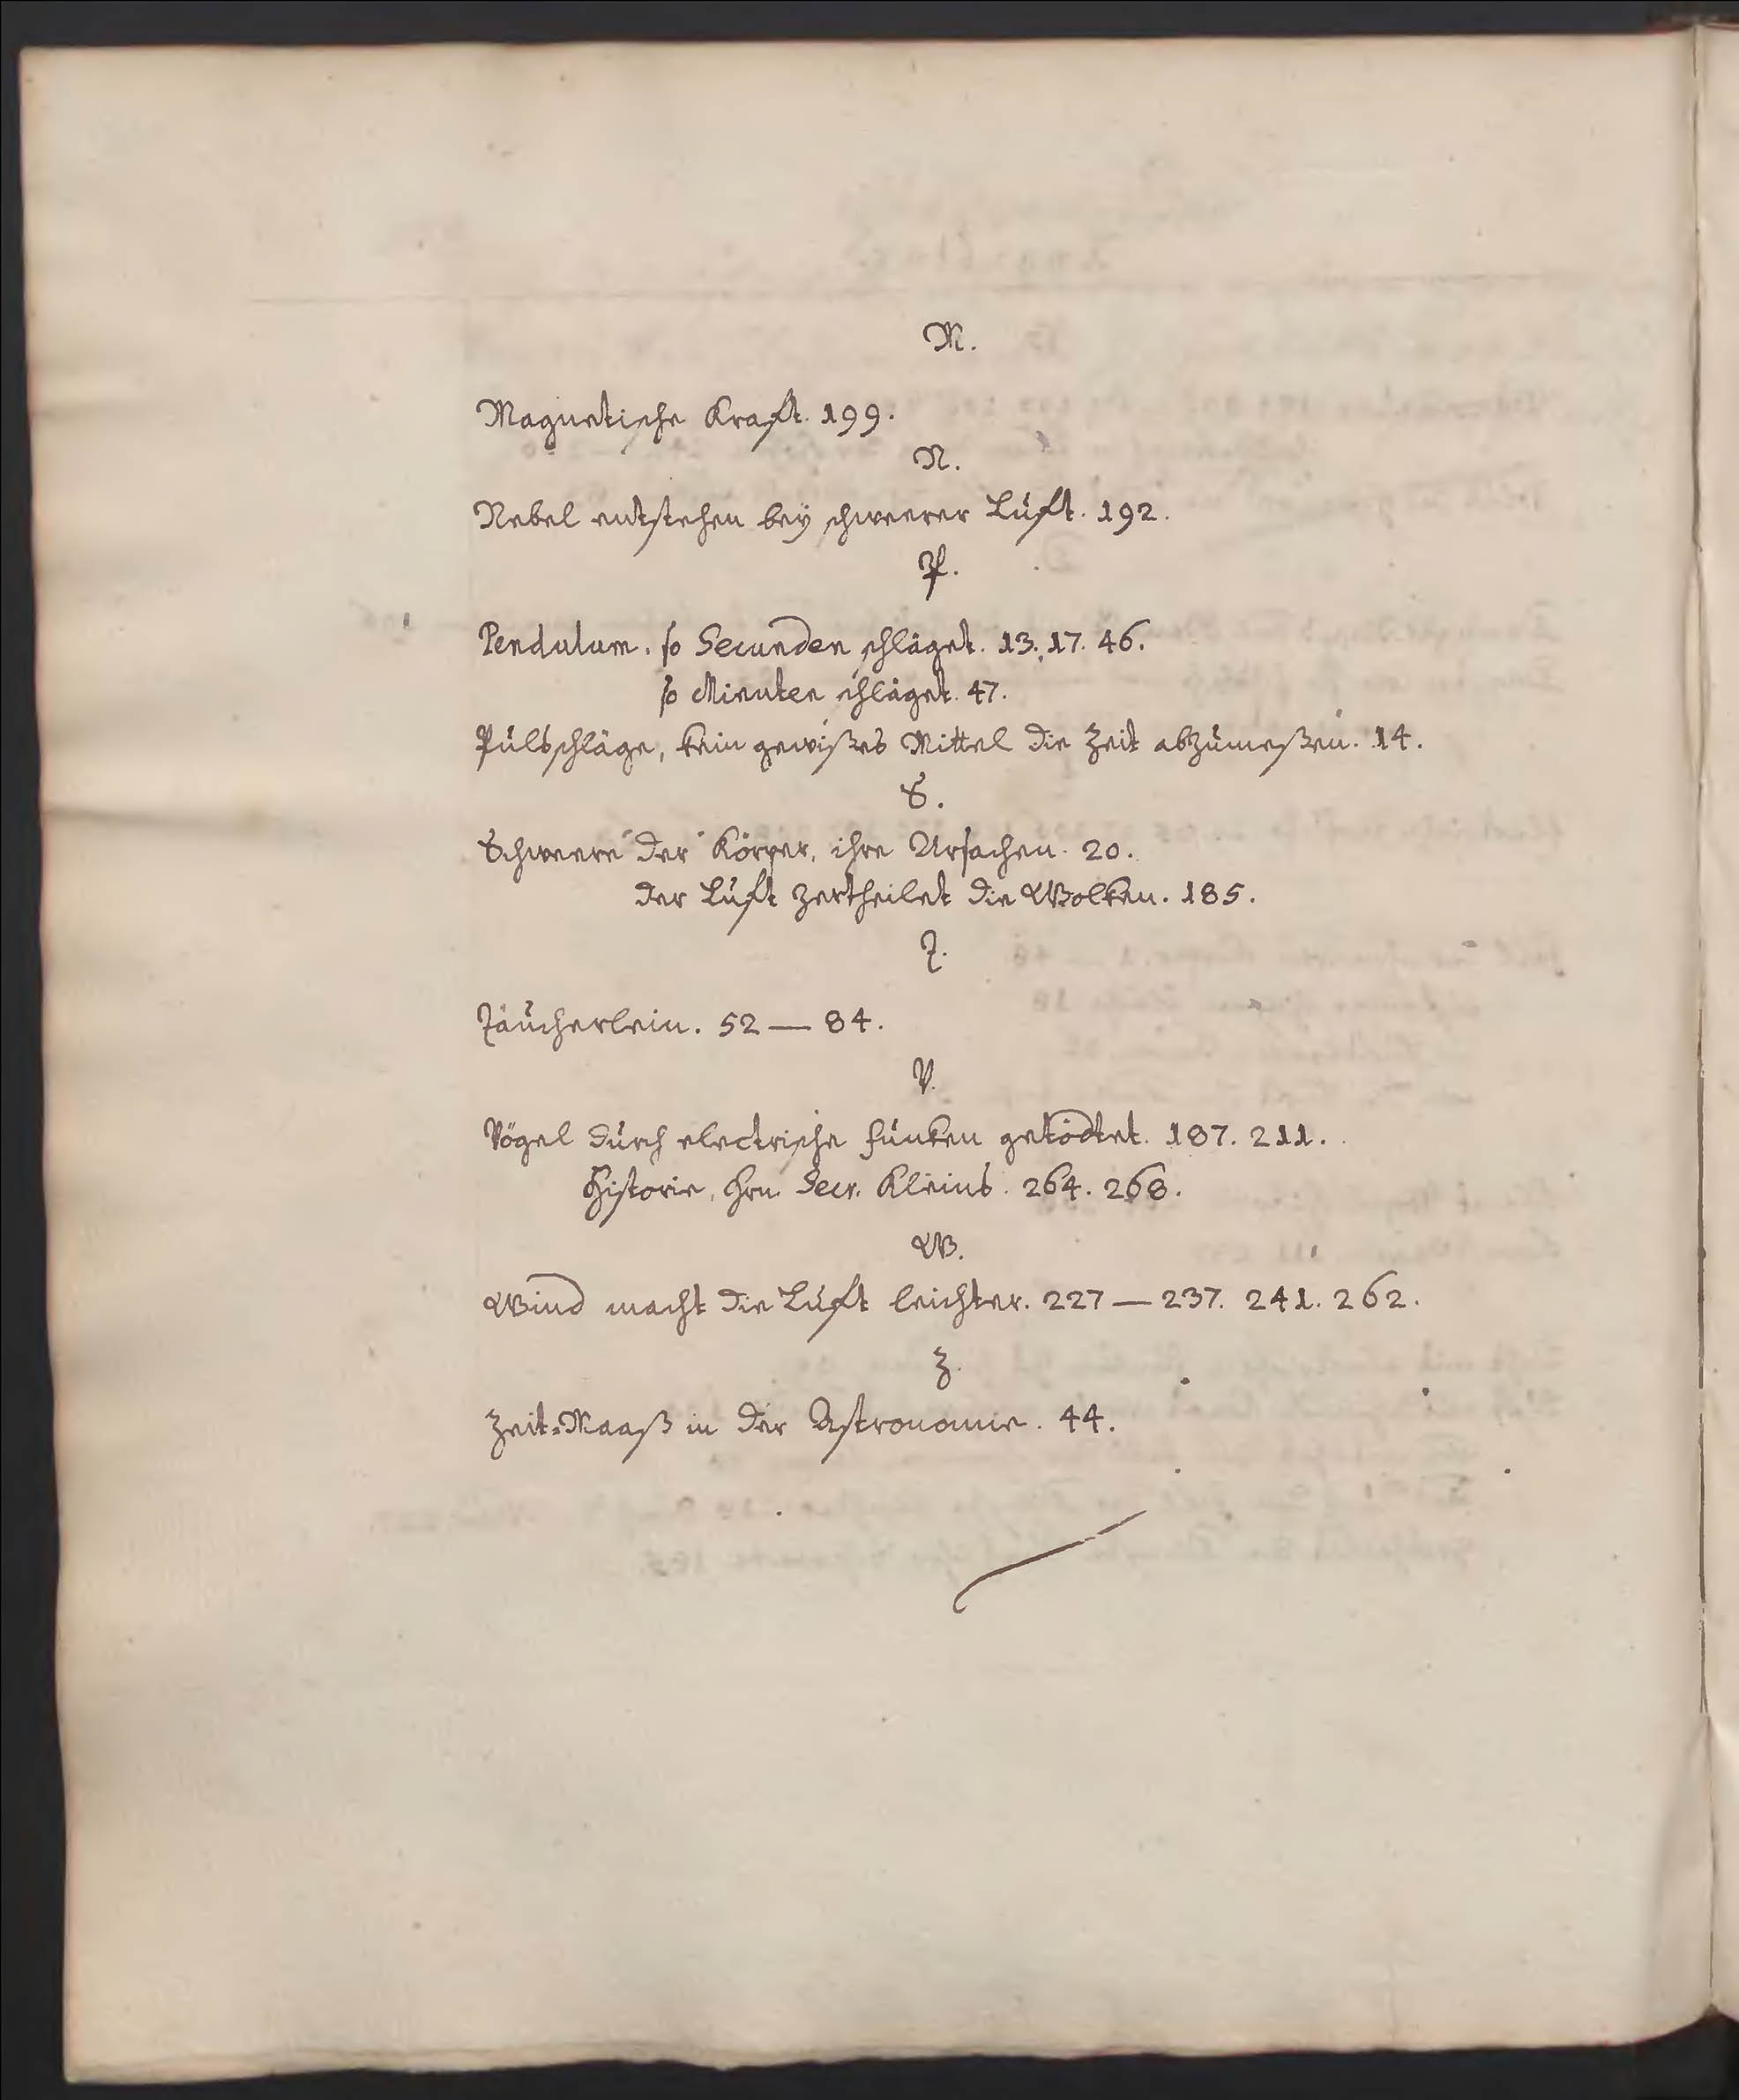 M.
Magnetische Kraft. 199.
N.
Nebel entstehen bey schweerer Luft. 192.
P.
Pendulum. so Secunden schläget. 13. 17. 46.
so Minuten schläget. 47.
Pulsschläge, kein gewißes Mittel die Zeit abzumeßen. 14.
S.
Schweere der Körper, ihre Ursachen. 20.
der Luft zertheilet die Wolken. 185.
T.
Täucherlein. 52 — 84.
V.
Vögel durch electrische Funken getödtet. 187. 211.
Historie, Hrn. Secr. Kleins. 264. 268.
W.
Wind macht die Luft leichter. 227 — 237. 241. 262.
Z.
Zeit=Maaß in der Astronomie. 44.